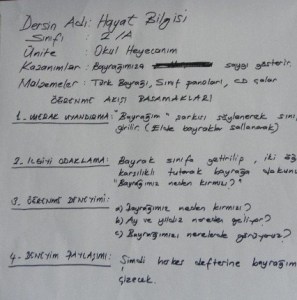 Dersin Adı: Hayat Bilgisi
Sınıfı : 2/A
Ünite : Okul Heyecanım
Kazanımlar : Bayrağımıza saygı gösterir.
Malzemeler : Türk Bayrağı, Sınıf panoları, CD çalar
ÖĞRENME AKIŞI BASAMAKLARI
1- MERAK UYANDIRMA: "Bayrağım" şarkısı söylenerek sını
girilir. (Elde bayraklar sallanarak)
2- İLGİYİ ODAKLAMA: Bayrak sınıfa getirilip, iki
karşılıklı tutarak bayrağa dokunu
"Bayrağımız neden kırmızı?"
3- ÖĞRENME DENEYİMİ: a) Bayrağımız neden kırmızı?
b) Ay ve yıldız nereden geliyor?
c) Bayrağımızı nerelerde görüyoruz?
4- DENEYİM PAYLAŞIMI: Şimdi herkes defterine bayrağım
çizecek.